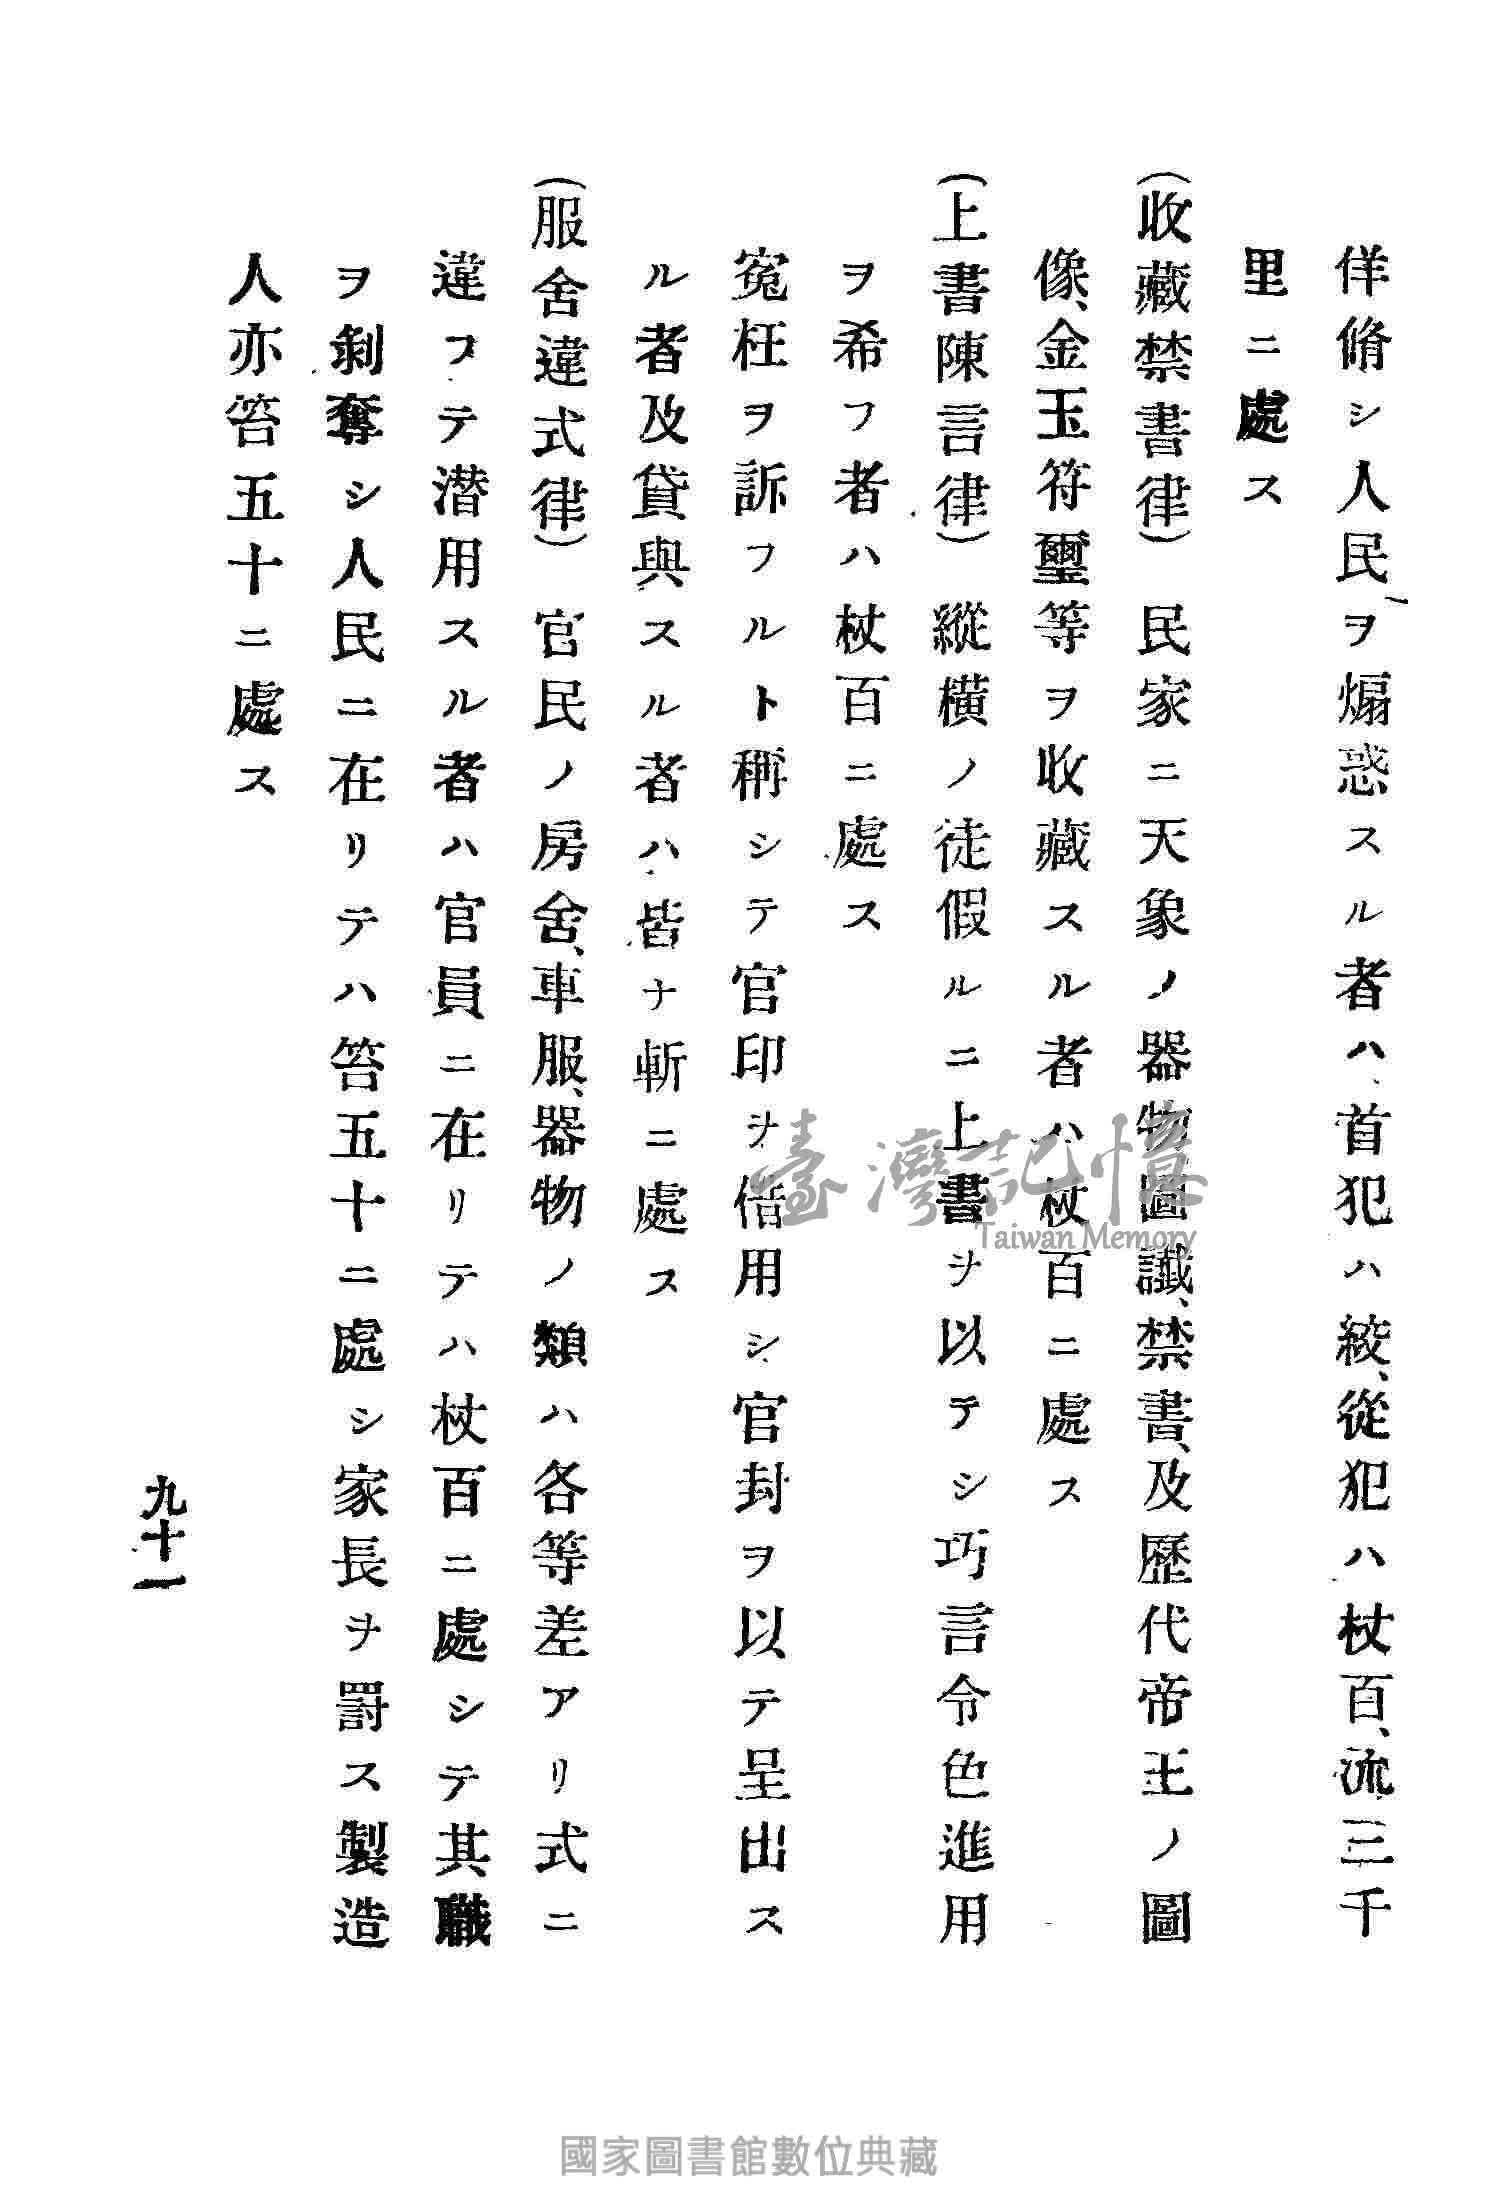 佯脩シ人民ヲ煽惑スル者ハ首犯ハ絞、從犯ハ杖百、流三千
里ニ處ス
(收藏禁書律)民家ニ天象ノ器物圖讖、禁書、及歷代帝王ノ圖
像、金玉符璽等ヲ收藏スル者ハ杖百ニ處ス
(上書陳言律)縱橫ノ徒假ルニ上書ヲ以テシ巧言令色進用
ヲ希フ者ハ杖百ニ處ス
寃枉ヲ訴フルト稱シテ官印ヲ借用シ官封ヲ以テ呈出ス
ル者及貸與スル者ハ皆ナ斬ニ處ス
(服舍違式律)官民ノ房舍、車服、器物ノ類ハ各等差アリ式ニ
違フテ潜用スル者ハ官員ニ在リテハ杖百ニ處シテ其職
ヲ剝奪シ人民ニ在リテハ笞五十ニ處シ家長ヲ罸ス製造
人亦笞五十ニ處ス
九十一
臺灣記憶
Taiwan Memory
國家圖書館數位典藏